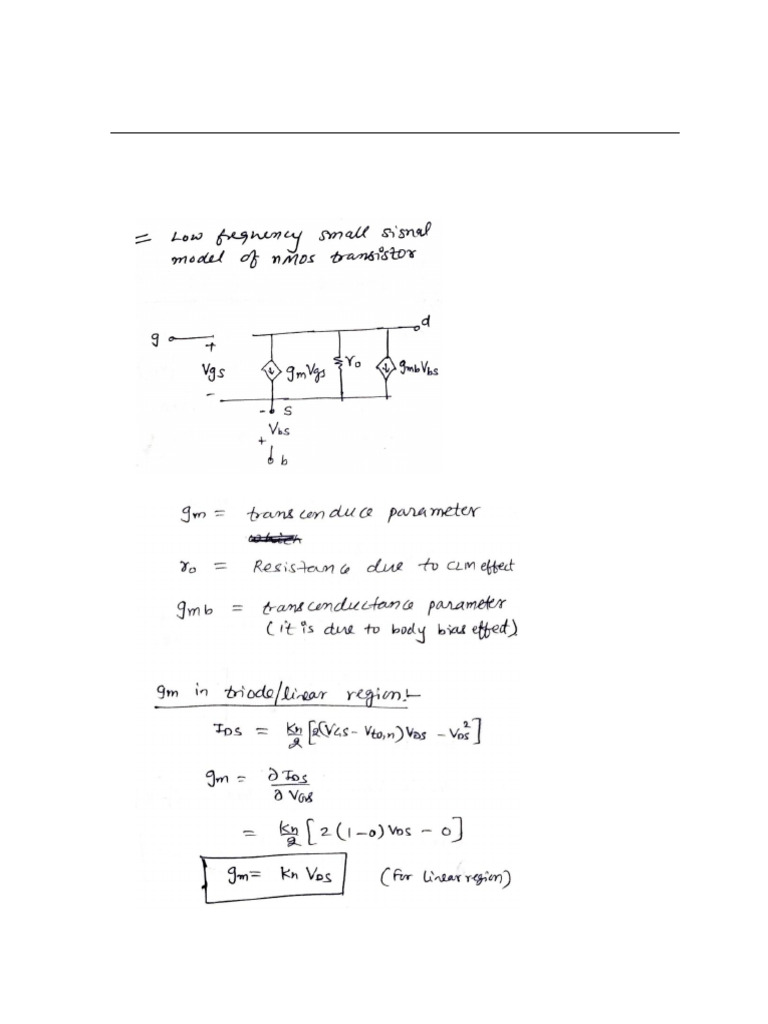 = Low frequency small signal
model of nMOS transistor
g
+
Vgs
-
gmVgs
ro
gmbVbs
d
- S
Vbs
+
b
gm = transcenduce parameter
ro = Resistance due to CLM effect
gmb = transconductance parameter
(it is due to body bias effect)
gm in triode/linear region:-
IDS = Kn/2 [2(VGS - Vto,n)VDS - VDS²]
gm = ∂IDS/∂VGS
= Kn/2 [2(1-0)VDS - 0]
gm = Kn VDS (for linear region)